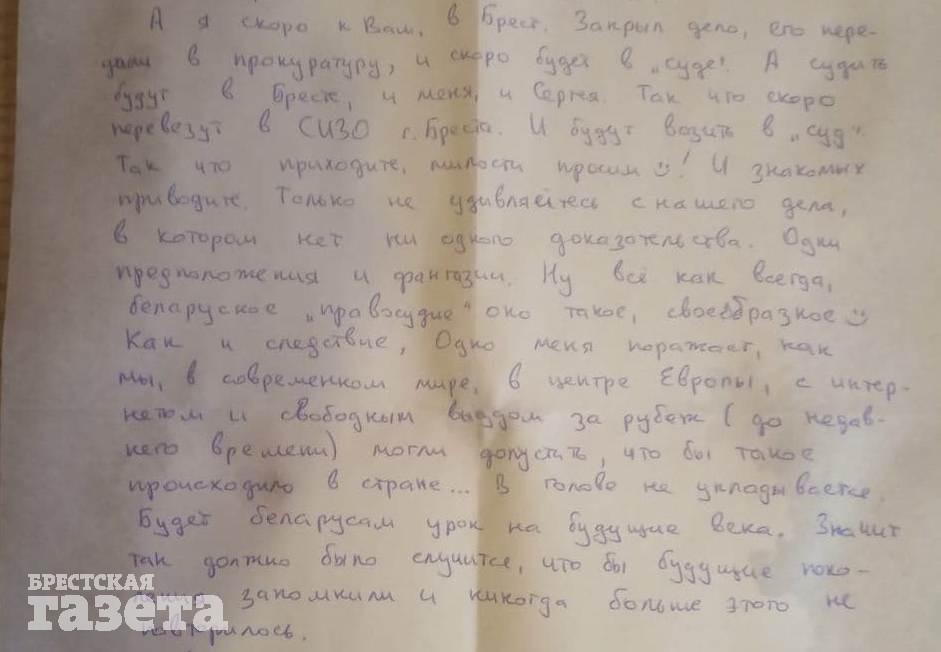 А я скоро к Вам, в Брест. Закрыл дело, его пере-
дали в прокуратуру, и скоро будет в „суде“. А судить
будут в Бресте, и меня, и Сергея. Так что скоро
перевезут в СИЗО г. Бреста. И будут возить в „суд“.
Так что приходите, милости просим☺! И знакомых
приводите. Только не удивляйтесь с нашего дела,
в котором нет ни одного доказательства. Одни
предположения и фантазии. Ну всё как всегда,
беларуское „правосудие“ оно такое, своеобразное☺
Как и следствие, Одно меня поражает, как
мы, в современном мире, в центре Европы, с интер-
нетом и свободным выездом за рубеж (до недав-
него времени) могли допустить, что бы такое
происходило в стране... В голове не укладывается.
Будет беларусам урок на будущие века. Значит
так должно было случится, что бы будущие поко-
ления запомнили и никогда больше этого не
повторилось.
БРЕСТСКАЯ
газета